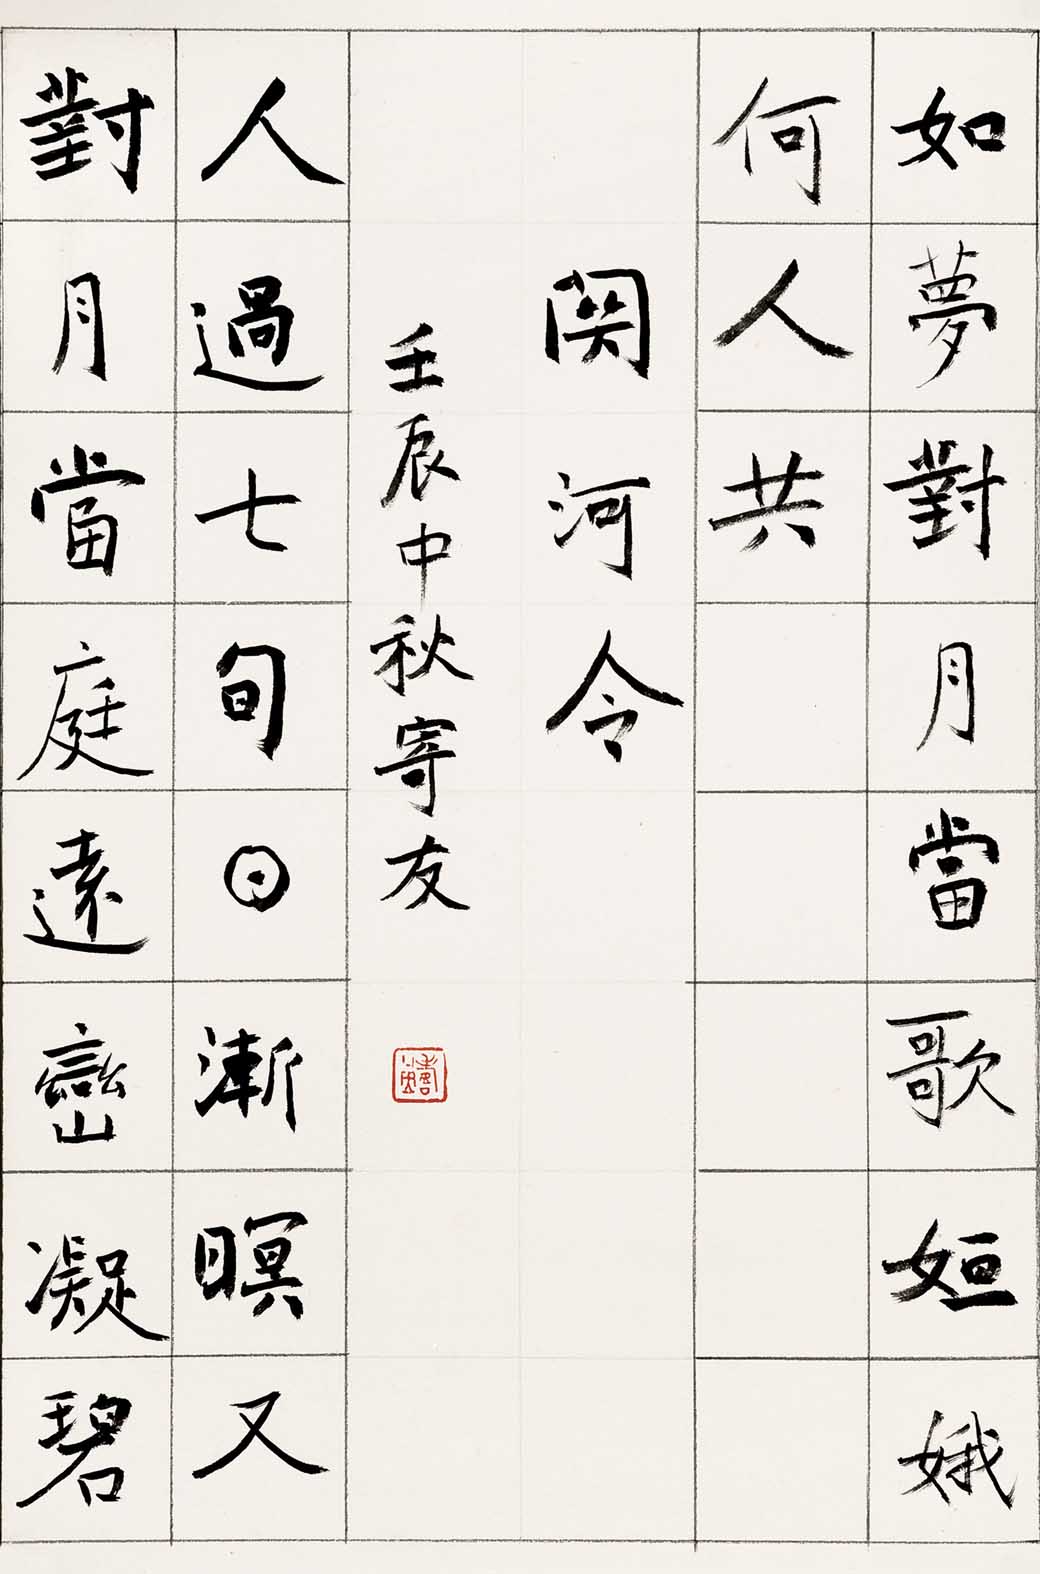 如夢對月當歌姮娥
何人共
関河令
壬辰中秋寄友
人過七旬日漸暝又
對月當庭遠巒凝碧